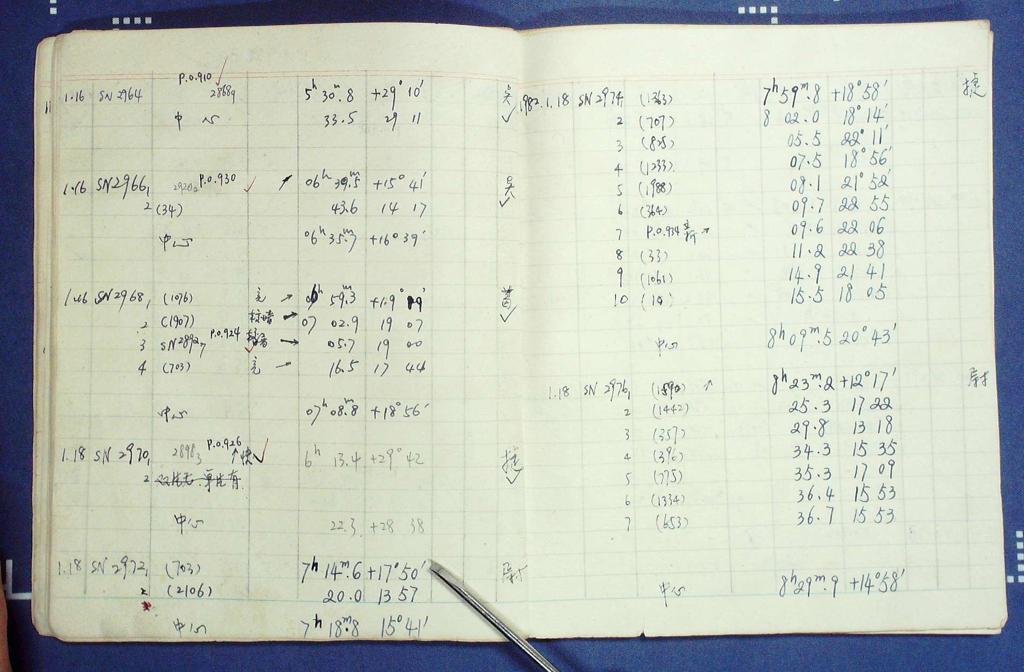 P.0.910
1.16 SN 2964 28689 5ʰ 30ᵐ.8 +29° 10′ 吴
中心 33.5 29 11
1.16 SN 2966₁ P.0.930 06ʰ 39ᵐ.5 +15° 41′ 吴
2 (34) 43.6 14 17
中心 06ʰ 35ᵐ.7 +16° 39′
1.16 SN 2968₁ (1076) 亮 → 06ʰ 59ᵐ.3 +19°
2 (1907) → 07 02.9 19 07
3 SN 2892₇ P.0.924 → 05.7 19 00
4 (703) 亮 → 16.5 17 44
中心 07ʰ 08ᵐ.8 +18° 56′
1.18 SN 2970₁ 2898₃ P.0.926 ↑ 6ʰ 13ᵐ.4 +29° 42 捷
2
中心 22.3 +28 38
1.18 SN 2972₁ (703) 7ʰ 14ᵐ.6 +17° 50′
2 (2106) 20.0 13 57
中心 7ʰ 18ᵐ.8 15° 41′
1982.1.18 SN 2974₁ (1363) 7ʰ 59ᵐ.8 +18° 58′ 捷
2 (707) 8 02.0 18° 14′
3 (825) 05.5 22° 11′
4 (1233) 07.5 18° 56′
5 (1988) 08.1 21° 52′
6 (364) 09.7 22 55
7 P.0.934 新 09.6 22 06
8 (33) 11.2 22 38
9 (1061) 14.9 21 41
10 (14) 15.5 18 05
中心 8ʰ 09ᵐ.5 20° 43′
1.18 SN 2976₁ (1890) ↑ 8ʰ 23ᵐ.2 +12° 17′
2 (1442) 25.3 17 22
3 (357) 29.8 13 18
4 (396) 34.3 15 35
5 (775) 35.3 17 09
6 (1334) 36.4 15 53
7 (653) 36.7 15 53
中心 8ʰ 29ᵐ.9 +14° 58′